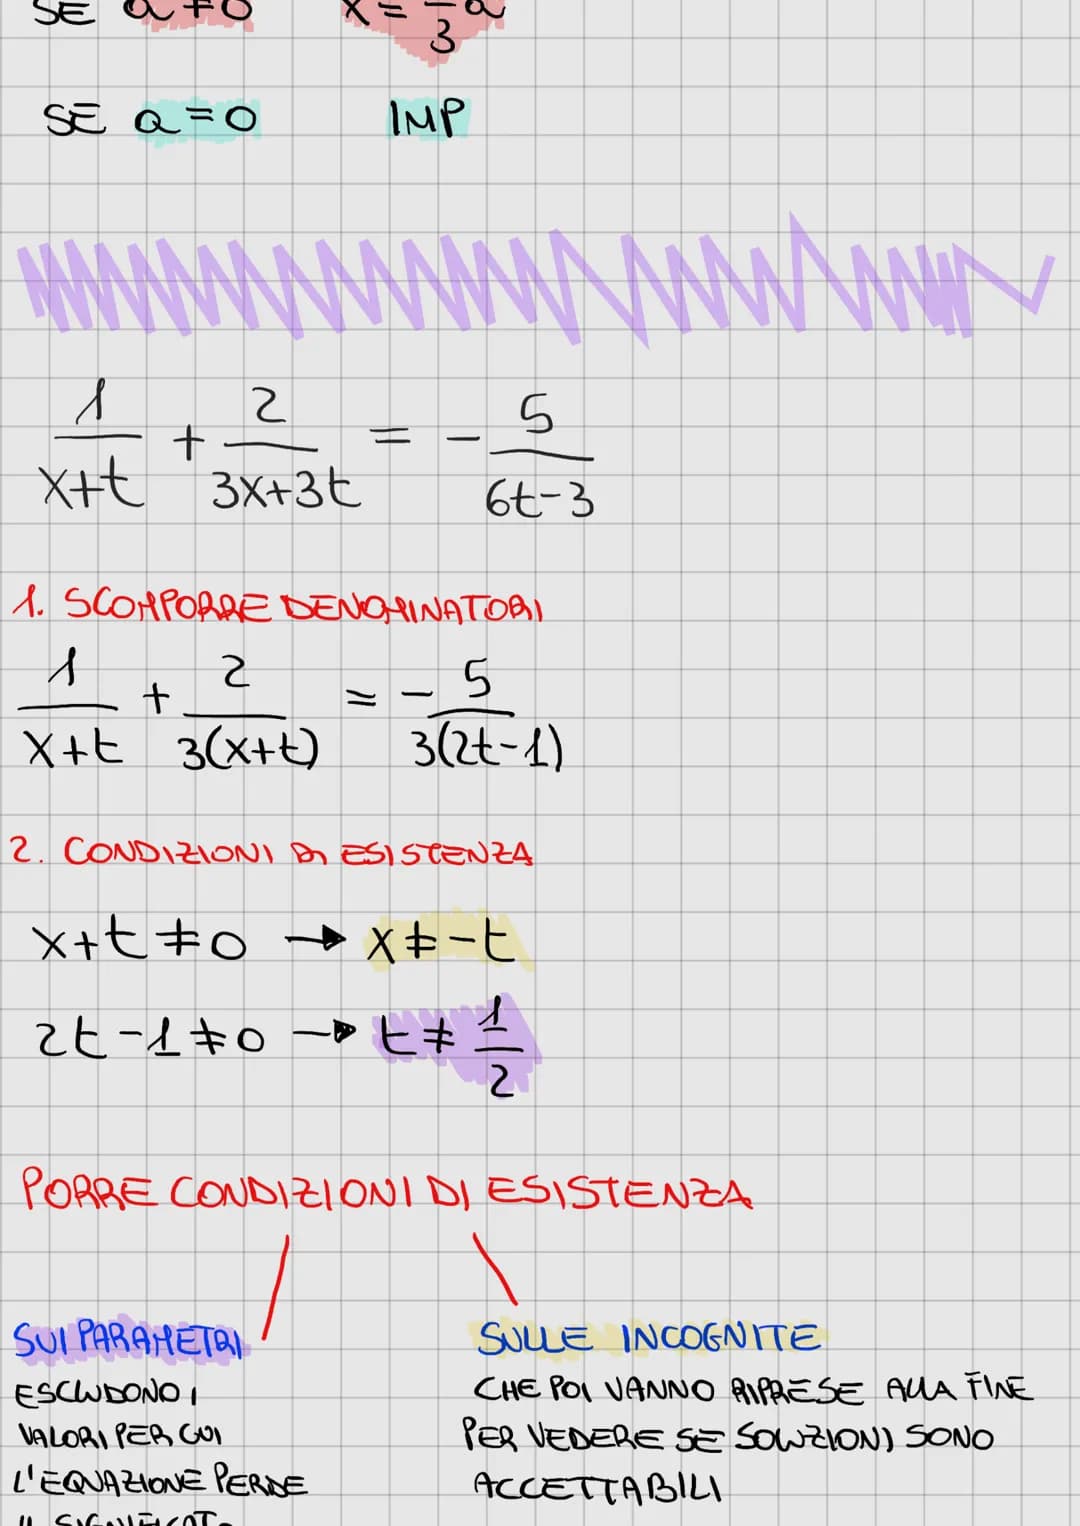 SE a≠0 x = -a/3
SE a=0 IMP
1/(x+t) + 2/(3x+3t) = - 5/(6t-3)
1. SCOMPORRE DENOMINATORI
1/(x+t) + 2/(3(x+t)) = - 5/(3(2t-1))
2. CONDIZIONI DI ESISTENZA
x+t≠0 → x≠-t
2t-1≠0 → t≠ 1/2
PORRE CONDIZIONI DI ESISTENZA
SUI PARAMETRI
ESCLUDONO I
VALORI PER CUI
L'EQUAZIONE PERDE
IL SIGNIFICATO
SULLE INCOGNITE
CHE POI VANNO RIPRESE ALLA FINE
PER VEDERE SE SOLUZIONI SONO
ACCETTABILI